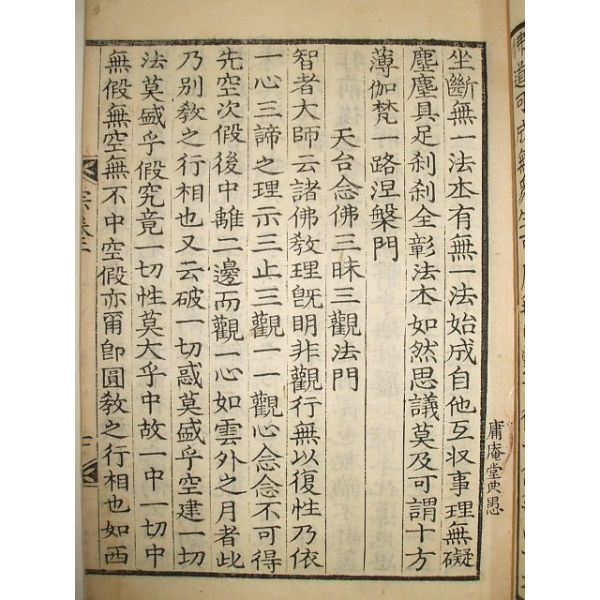 坐斷無一法本有無一法始成自他互収事理無礙
塵塵具足刹刹全彰法本如然思議莫及可謂十方
薄伽梵一路涅槃門
天台念佛三昧三觀法門
智者大師云諸佛敎理旣明非觀行無以復性乃依
一心三諦之理示三止三觀一一觀心念念不可得
先空次假後中離二邊而觀一心如雲外之月者此
乃別敎之行相也又云破一切惑莫盛乎空建一切
法莫盛乎假究竟一切性莫大乎中故一中一切中
無假無空無不中空假亦爾卽圓敎之行相也如西
庸庵堂典愚